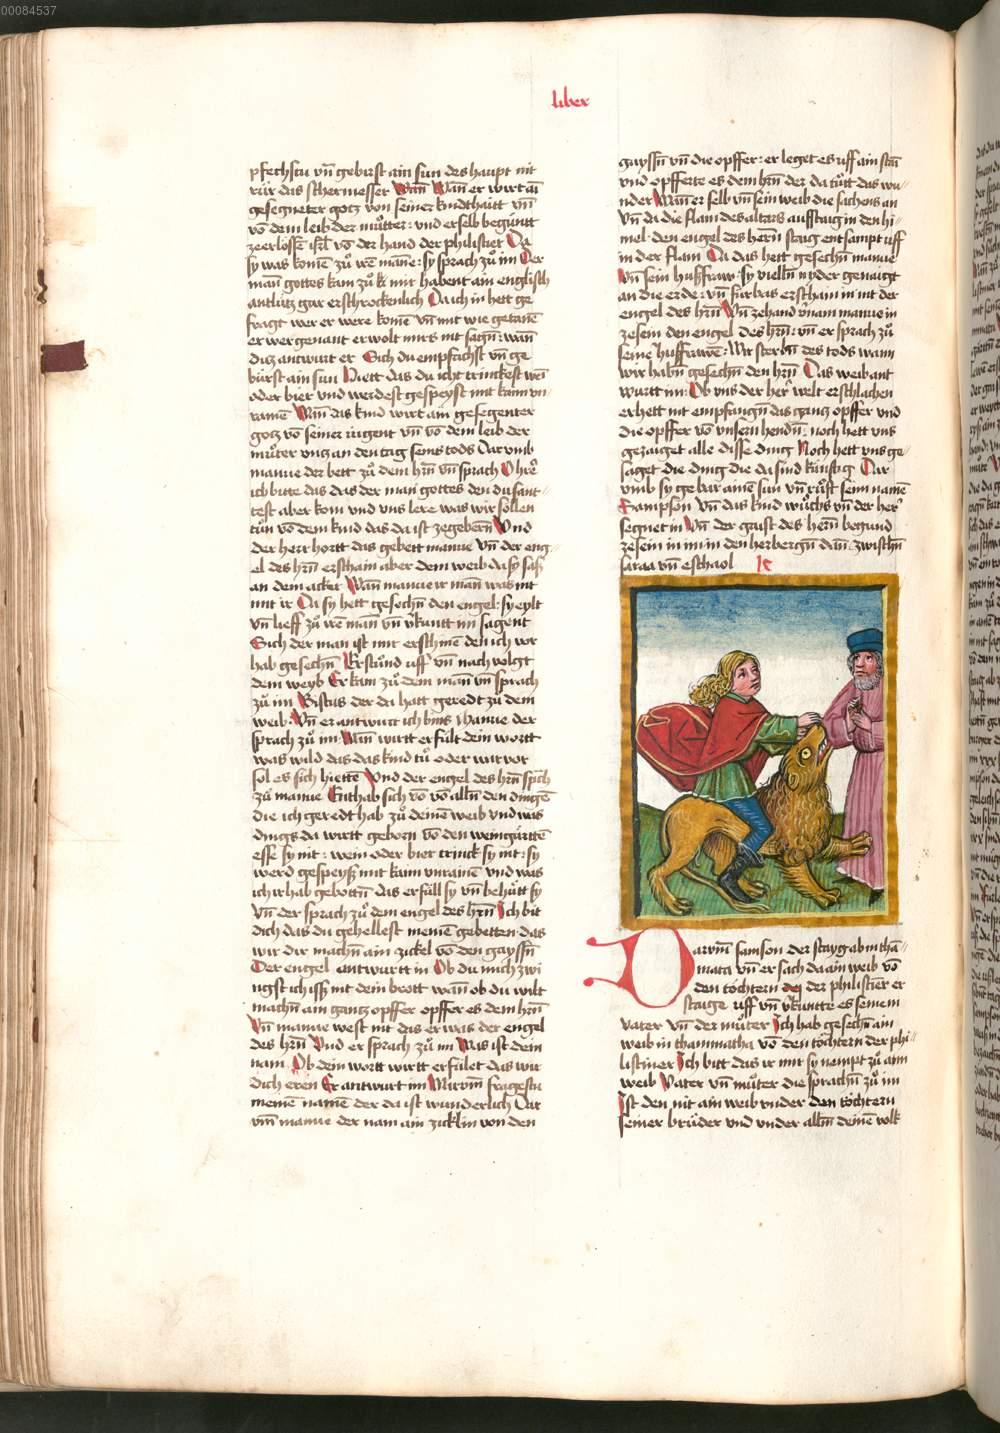 00084537
liber
pfechstu vn̄ geburst ain sun des haupt nit
rür das schermesser Wan er wirt ai
gesegneter gotz von seiner kindthaitt vn̄
vō dem leib der mu̇tter: vnd er selb begüntt
zeerlösse isrl vō der hand der philistiet Da
sy was kome zů irē mane: sy sprach zů im Der
man gottes kam zů mir habent ain englisch
antlütz gar erschrockenlich Da ich in hett ge
fragt wer er were kome vn̄ mit wie getane
er wer genant er wolt mirs nit sagn̄: wan
daz antwurt er Sich du empfachst vn̄ ge
bürst ain sun Hiett das du icht trinckest wei
oder bier vnd werdest gespeyst mit kaim vn
raine Wan das kind wirt ain gesegenter
gotz vō seiner iugent vn̄ vō dem leib der
mu̇ter vntz an den tag seins tods Dar vmb
manue der bett zů dem hrn̄ vn̄ sprach O hrē
ich bitte das das der man gottes den du sant
test aber kom vnd vns lere was wir söllen
tůn vō dem kind das da ist zegebern̄ Vnd
der herr hortt das gebett manue vn̄ der eng
el des hrn̄ erschain aber dem weib da sy saß
an dem acker Wan manue ir man was nit
mit ir Da sy hett gesechn̄ den engel: sy eylt
vn̄ lieff zů irē man vn̄ v̄kuntt im sagent
Sich der man ist mir erschine den ich vor
hab gesechn̄ Er stůnd uff vn̄ nach volgt
dem weyb Er kam zů dem man vn̄ sprach
zů im Bistus der da hatt geredt zů dem
weib: Vn̄ er antwurt ich bins Manue der
sprach zů im: Wan wirtt erfült dein wortt
was wild das das kind tů oder wir vor
sol es sich hiette Vnd der engel des hrn̄ sprch
zů manue Enthab sich vō alln̄ den dinge
die ich geredt hab zů deine weib vnd was
dings da wirtt geborn vō den weingärtte
esse sy nit: wein oder bier trinck sy nit: sy
werd gespeyß mit kaim vnraine vnd was
ich ir hab gebottn̄ das erfüll sy vn̄ behu̇tt sy
Vn̄ der sprach zů dem engel des hrn̄ Ich bit
dich das du gehellest meine gebetten das
wir dir machn̄ ain zickel vō den gayssn̄
Der engel antwurtt in Ob du mich zwi
ngst ich iß nit dein brott wan ob du wilt
machn̄ ain gantz opffer opffer es dem hrn̄
Vn̄ manue west nit das er was der engel
des hrn̄ Vnd er sprach zů im Was ist dein
nam Ob dein wortt wirtt erfület das wir
dich eren Er antwurt im Warvm̄ fragestu
meine name der da ist wunderlich Dar
vm̄ manue der nam ain zicklin von den
gayssn̄ vn̄ die opffer: er leget es uff ain stai
vnd opfferte es dem hrn̄ der da tůtt das wu
nder Wan er selb vn̄ sein weib die sachens an
Vn̄ da die flam des alters auffstaig in den hi
mel den engel des hern̄ staig entsampt uff
in der flam Da das hett gesechn̄ manue
Vn̄ sein hußfraw: sy vielln̄ nyder genaigt
an die erde: vn̄ fürbas erschain in nit der
engel des hrn̄ Vn̄ zehand v̄nam manue in
zesein den engel des hrn̄: vn̄ er sprach zů
seine hußfrawe: Wir sterbn̄ des tods wann
wir habn̄ gesechn̄ den hrn̄ Das weib ant
wurtt im: Ob vns der her welt erschlachen
er hett nit empfangn̄ das gantz opffer vnd
die opffer vō vnsern hendn̄: noch hett vns
gezaiget alle disse ding Noch hett vns ge
saget die ding die da sind künftig Dar
vmb sy gebar aine sun vn̄ ru̇fft seim name
Sampson Vn̄ das kind wu̇chs vn̄ der her
segnet in Vn̄ der gaist des hern̄ begund
zesein in im in den herbergn̄ dan: zwischn̄
saraa vn̄ eschaol
Darvm̄ samson der stayg ab in tha
mata vn̄ er sach da ain weib vō
den töchtern der philistier er
staige uff vn̄ v̄kuntte es seinem
vater vn̄ der mu̇ter Ich hab gesechn̄ ain
weib in thammatha vō den töchtern der phi
listiner Ich bitt das ir mir sy nempt zů aim
weib Vater vn̄ mu̇ter die sprachn̄ zů im
Ist den nit ain weib vnder den töchtern
seiner bru̇der vnd vnder alln̄ deine volk